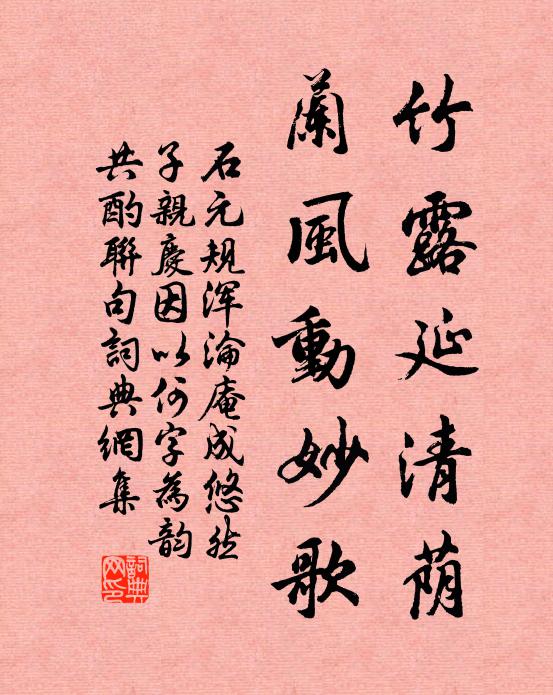 竹露延清荫
蘭風動妙歌
石元規浑淪庵成悠然
子親慶因以何字為韵
共酌聯句詞典網集
詞典网印